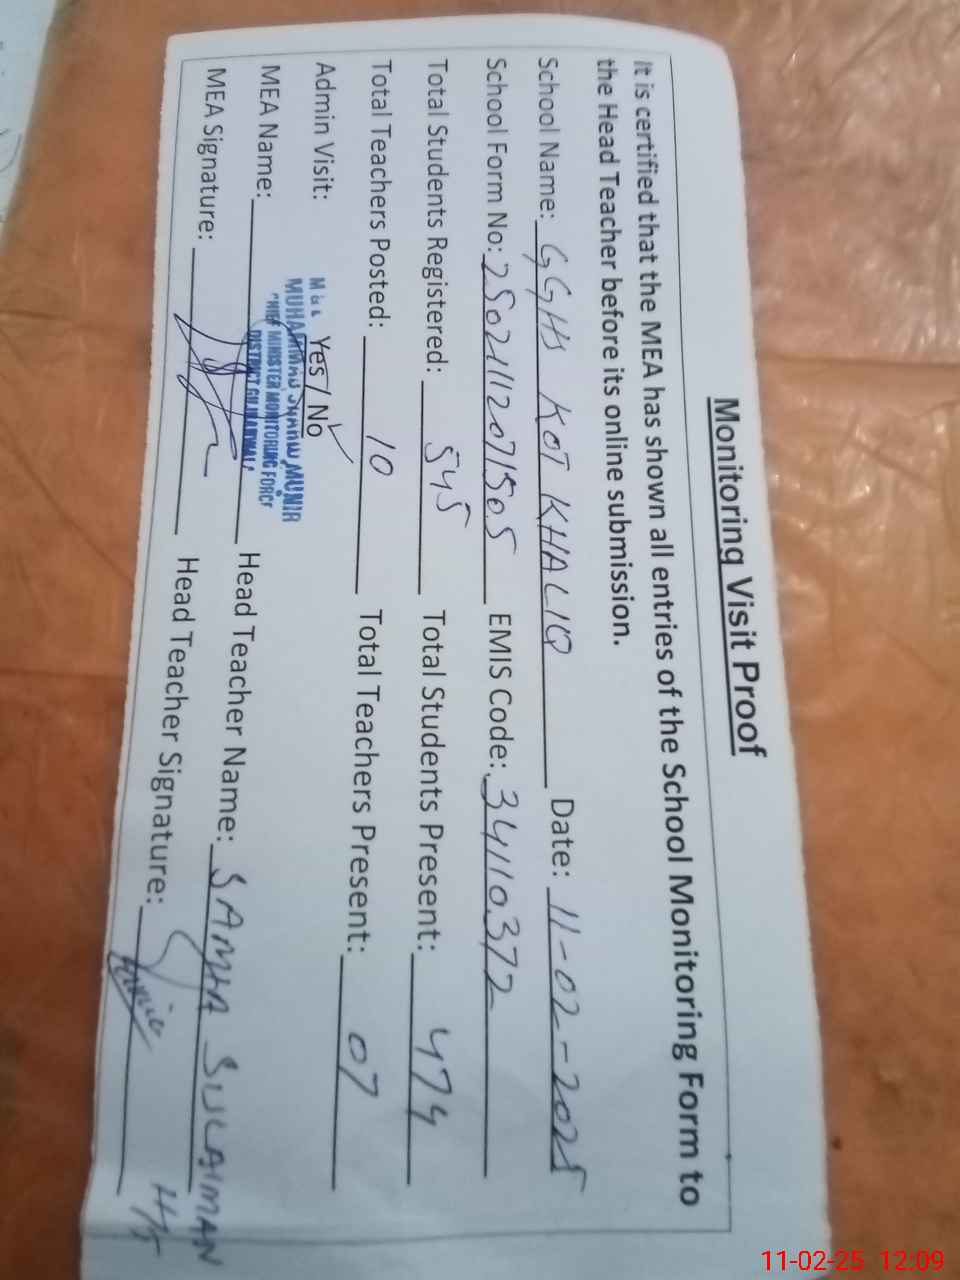 Monitoring Visit Proof
It is certified that the MEA has shown all entries of the School Monitoring Form to
the Head Teacher before its online submission.
School Name: GGHS KOT KHALIQ Date: 11-02-2025
School Form No: 25021112071505 EMIS Code: 34110372
Total Students Registered: 545 Total Students Present: 474
Total Teachers Posted: 10 Total Teachers Present: 07
Admin Visit: Yes / No
MUNIR
CHIEF MINISTER MONITORING FORCE
DISTRICT GUJRANWALA
MEA Name: Head Teacher Name: SAMIA SULAIMAN
MEA Signature: Head Teacher Signature:
11-02-25 12:09